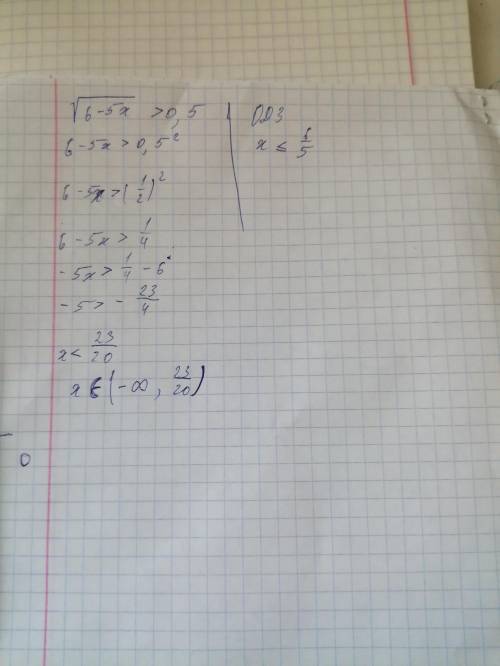 √(6-5x) > 0,5
6-5x > 0,5²
6-5x > (1/2)²
6-5x > 1/4
-5x > 1/4 - 6
-5 > - 23/4
x < 23/20
x ∈ (-∞, 23/20)
ОДЗ
x ≤ 6/5
0